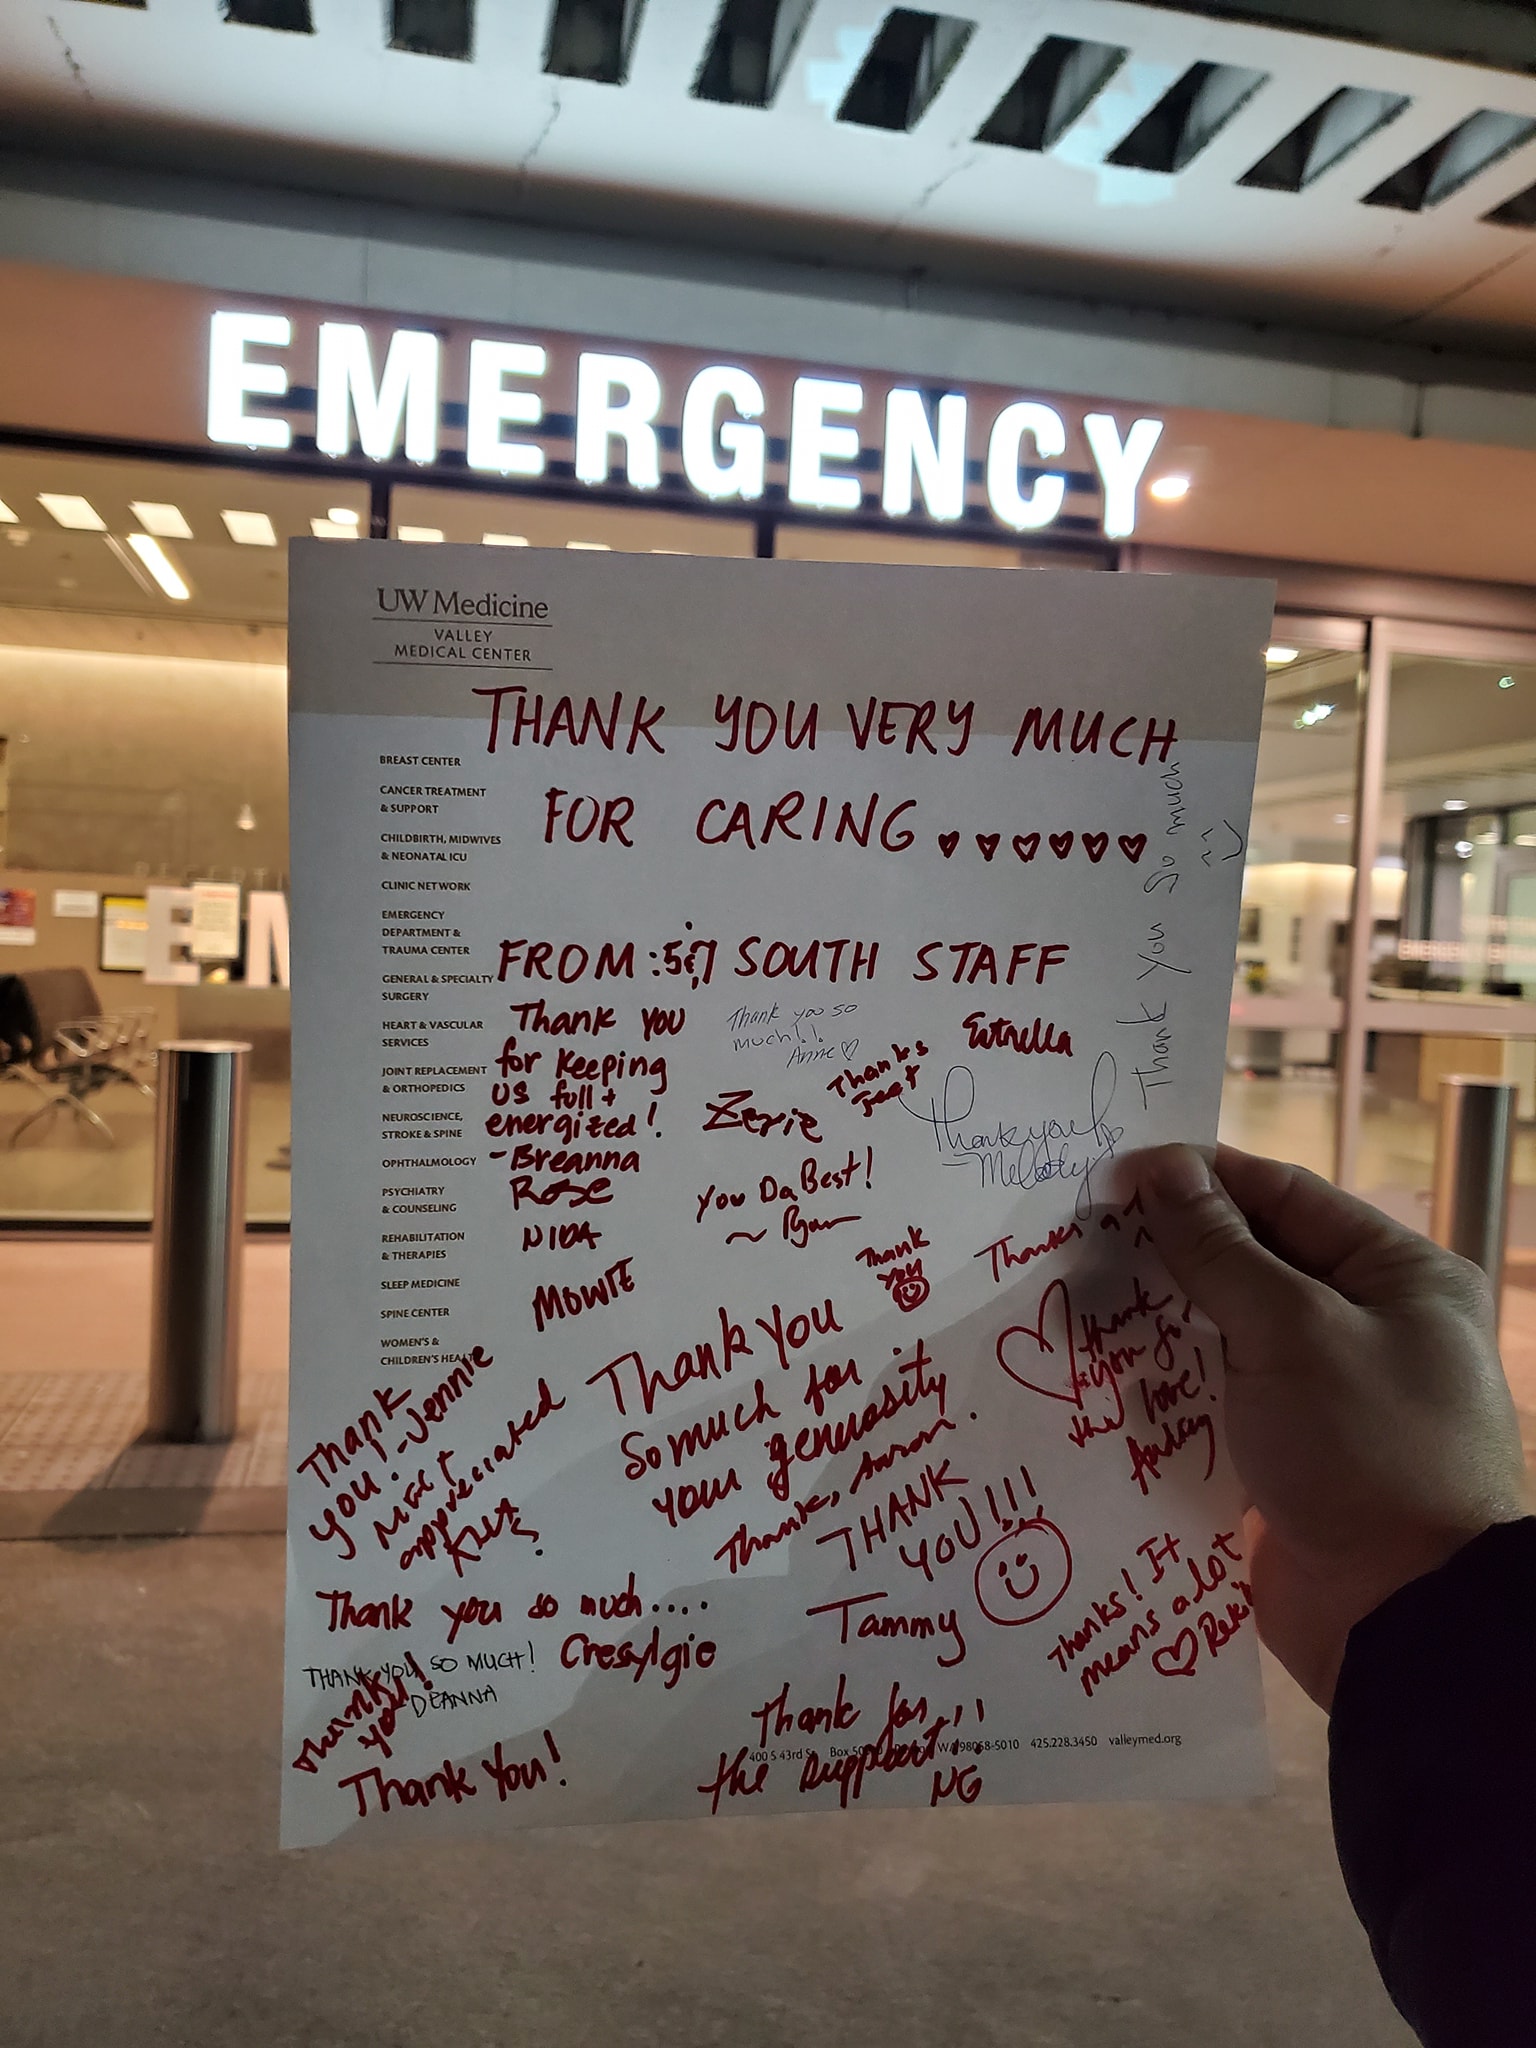 EMERGENCY
UW Medicine
VALLEY
MEDICAL CENTER
THANK YOU VERY MUCH
FOR CARING
BREAST CENTER
CANCER TREATMENT
& SUPPORT
CHILDBIRTH, MIDWIVES
& NEONATAL ICU
CLINIC NETWORK
EMERGENCY
DEPARTMENT &
TRAUMA CENTER
GENERAL & SPECIALTY
SURGERY
HEART & VASCULAR
SERVICES
JOINT REPLACEMENT
& ORTHOPEDICS
NEUROSCIENCE,
STROKE & SPINE
OPHTHALMOLOGY
PSYCHIATRY
& COUNSELING
REHABILITATION
& THERAPIES
SLEEP MEDICINE
SPINE CENTER
WOMEN'S &
CHILDREN'S HEALTH
Thank You So much
FROM: 5&7 SOUTH STAFF
Thank you
for keeping
us full +
energized!
-Breanna
Rose
NIDA
MOWIE
Thank you so
much!!
Anne
Estrella
Zerie
Thanks
Thank you
-Melody
You Da Best!
~ Ryan
Thank
you
Thanks
Thank You
so much for
your generosity
Thanks, Aaron.
thank
you for
this love!
Audrey
Thank
you! -Jennie
Most
appreciated
THANK
YOU!!!
Tammy
Thanks! It
means a lot
Thank you so much....
Cresylgie
THANK YOU SO MUCH!
DEANNA
Thank
you!
Thank You!
Thank for
the support!!
NG
400 S 43rd St Box 50 WA 98058-5010 425.228.3450 valleymed.org